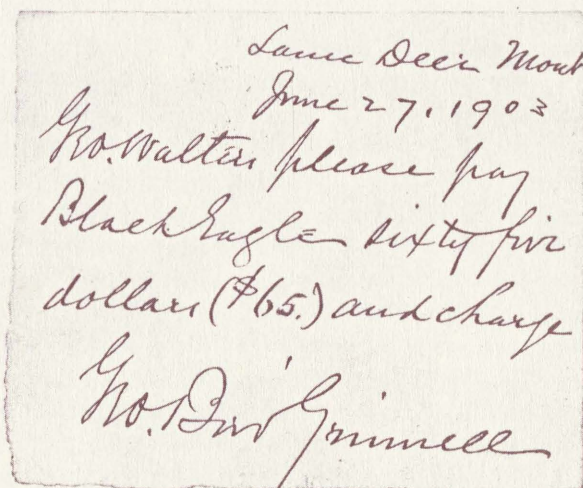 Lame Deer Mont
June 27, 1903
Geo. Walters please pay
Black Eagle sixty five
dollars ($65.) and charge
Geo. Bird Grinnell